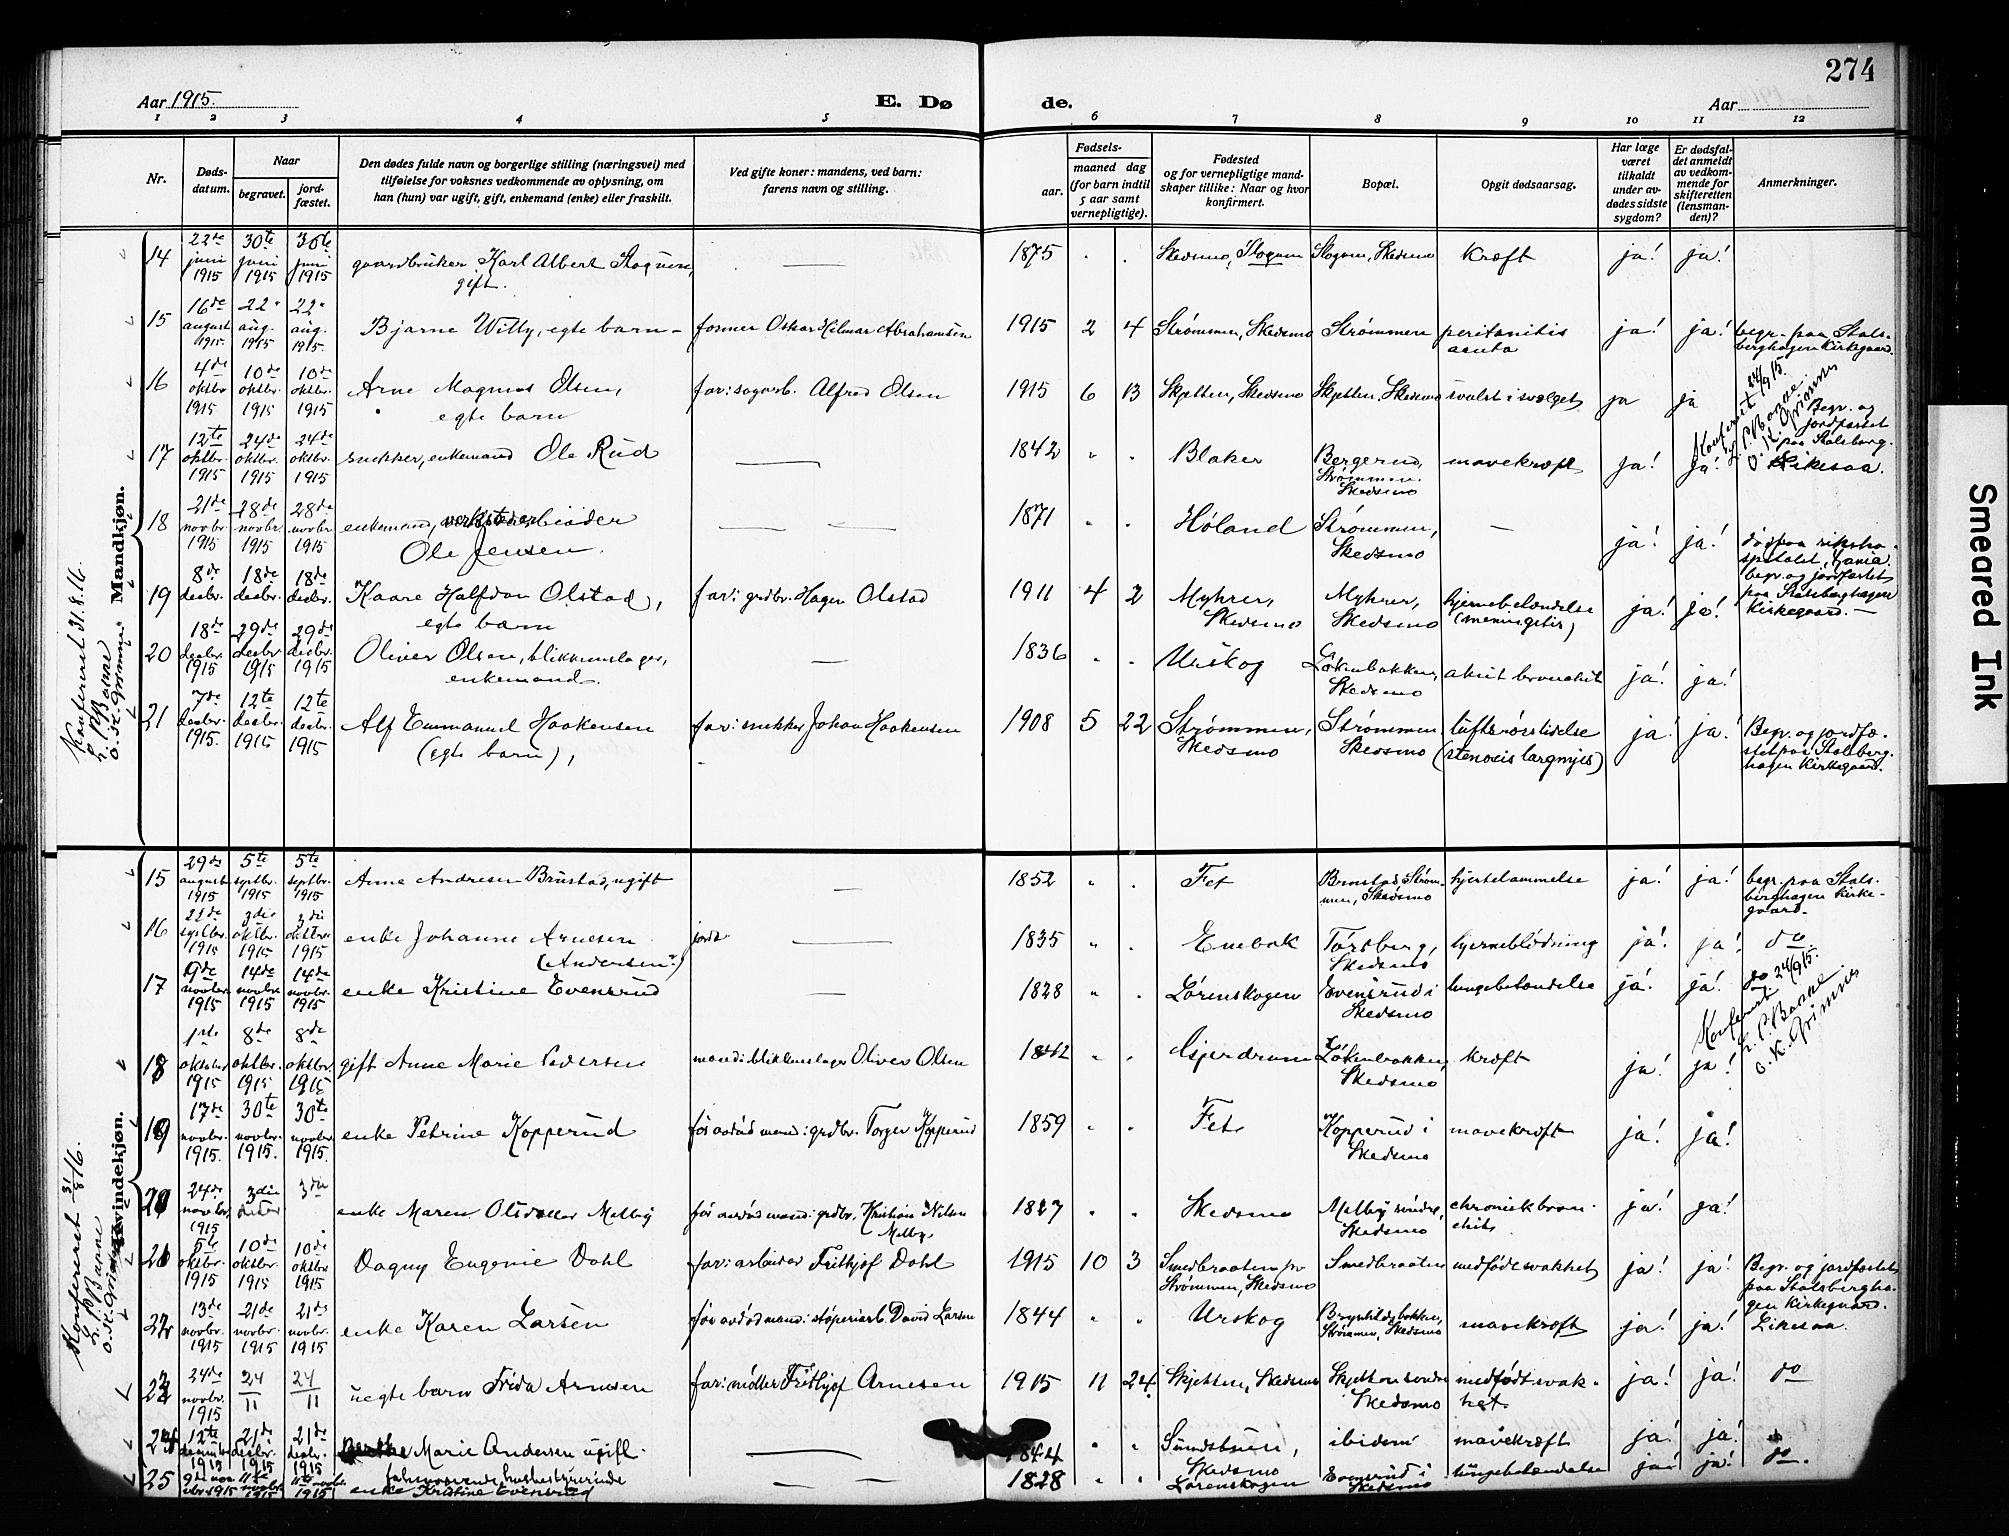 274
Aar 1915.
E. Dø
de.
Aar
1 2 3 4 5 6 7 8 9 10 11 12
Nr.
Døds-
datum.
Naar
begravet.
jord-
fæstet.
Den dødes fulde navn og borgerlige stilling (næringsvei) med
tilføielse for voksnes vedkommende av oplysning, om
han (hun) var ugift, gift, enkemand (enke) eller fraskilt.
Ved gifte koner: mandens, ved barn:
farens navn og stilling.
Fødsels-
aar.
maaned dag
(for barn indtil
5 aar samt
vernepligtige).
Fødested
og for vernepligtige mand-
skaper tillike: Naar og hvor
konfirmert.
Bopæl.
Opgit dødsaarsag.
Har læge
været
tilkaldt
under av-
dødes sidste
sygdom?
Er dødsfal-
det anmeldt
av vedkom-
mende for
skifteretten
(lensman-
den)?
Anmerkninger.
Mandkjøn.
Konfereret 31.8.16.
14 22de juni 1915 30te juni 1915 30te juni 1915 gaardbruker Karl Albert
gift. 1875 Skedsmo kræft ja! ja!
15 16de august 1915 22 aug. 1915 22 aug. 1915 Bjarne Willy, egte barn former Oskar Hilmar Abrahamsen 1915 2 4 Strømmen, Skedsmo Strømmen peritonitis
acuta ja! ja! begr. paa Stals-
berghagen Kirkegaard.
16 4de oktbr 1915 10de oktbr. 1915 10de oktbr. 1915 Arne Magnus Olsen,
egte barn far: sagarb. Alfred Olsen 1915 6 13 Skjetten, Skedsmo Skjetten, Skedsmo svulst i svælget ja ja
Konfereret 24/9 15.
17 12te oktbr. 1915 24de oktbr. 1915 24de oktbr. 1915 snekker, enkemand Ole Rud 1842 Blaker Bergerud,
Strømmen.
Skedsmo mavekræft ja! ja! Begr. og
jordfæstet
paa Stalsberg.
Likesaa.
18 21de novbr. 1915 28de novbr 1915 28de novbr 1915 enkemand, verkstedarbeider
Ole Jensen. 1871 Høland Strømmen,
Skedsmo — ja! ja! død paa riksho-
spitalet, Kania.
begr. og jordfæstet
paa Stalsberghagen
Kirkegaard.
19 8de desbr. 1915 18de desbr. 1915 18de desbr. 1915 Kaare Halfdan Olstad,
egte barn far: grdbr. Hagen Olstad 1911 4 2 Myhrer,
Skedsmo Myhrer,
Skedsmo hjernebetændelse
(meningitis) ja! ja!
20 18de desbr. 1915 29de desbr. 1915 29de desbr. 1915 Oliver Olsen, blikkenslager,
enkemand. 1836 Urskog Løkenbakken,
Skedsmo akut bronchit ja! ja!
21 7de desbr. 1915. 12te desbr. 1915 12te desbr. 1915 Alf Emmanuel Haakensen
(egte barn), far: snekker Johan Haakensen 1908 5 22 Strømmen,
Skedsmo Strømmen
Skedsmo luftrørslidelse
(stenosis laryngis) ja! ja! Begr. og jordfæ-
stet paa Stalsberg-
hagen Kirkegaard.
Kvindekjøn.
Konfereret 31/8 16.
15 29de august 1915 5te septbr. 1915 5te septbr. 1915 Anne Andresen Brustad, ugift 1852 Fet Brustad, Strøm-
men, Skedsmo hjertelammelse ja! ja! begr. paa Stals-
berghagen Kirke-
gaard.
16 septbr. 1915 3die oktbr. 1915 3die oktbr. 1915 enke Johanne Arnesen
(Andersen?) 1835 Enebak Torsberg,
Skedsmo hjerneblödning ja! ja! do
17 9de novbr. 1915 14de novbr. 1915 14de novbr. 1915 enke Kristine Evensrud 1828 Lørenskogen Evensrud i
Skedsmo lungebetændelse ja! ja! do
Konfereret 24/9 15.
18 1ste oktober 1915 8de oktbr. 1915 8de oktbr. 1915 gift Anne Marie Pedersen mand: blikkenslager Oliver Olsen 1842 Gjerdrum Løkenbakken,
Skedsmo kræft ja! ja!
19 17de novbr. 1915. 30te novbr. 1915. 30te novbr. 1915. enke Petrine Kopperud før avdød mand: grdbr. Torger Kopperud 1859 Fet. Kopperud i
Skedsmo mavekræft ja! ja!
20 24de novbr. 1915 3die 3die enke Maren Olsdatter Melby før avdød mand: grdbr. Kristian Nilsen
Melby. 1827 Skedsmo Melby søndre,
Skedsmo chronisk bron-
chit ja! ja!
21 5te oktbr. 1915 10de oktbr. 1915 10de oktbr 1915 Dagny Eugenie Dahl far: arbeider Frithjof Dahl 1915 10 3 Smedbraaten pr
Strømmen, Skedsmo Smedbraaten medfødt svakhet ja! ja! Begr. og jordfæstet
paa Stalsbergha-
gen Kirkegaard.
22 13de novbr. 1915 21de novbr. 1915 21de novbr. 1915 enke Karen Larsen før avdød mand: støperiarb. David Larsen 1844 Urskog Brynhildsbakken,
Strømmen, Skedsmo mavekræft ja! ja! Likesaa.
23 24de novbr. 1915 24/11 24/11 uegte barn Frida Arnesen far: møller Frithjof Arnesen 1915 11 24 Skjetten, Skedsmo Skjetten søndre
Skedsmo medfødt svak-
het. ja! ja! do
24 12te decembr 1915 21de desbr. 1915 21de desbr. 1915 Marie Andersen ugift.
forhenværende husbestyrerinde 1844 Skedsmo ibidem mavekræft ja! ja! do
25 9de novbr 1915 11te novbr 1915 11te novbr 1915 enke Kristine Evensrud 1828 Lørenskogen Evensrud i
Skedsmo lungebetændelse ja! ja! do.
Smeared Ink